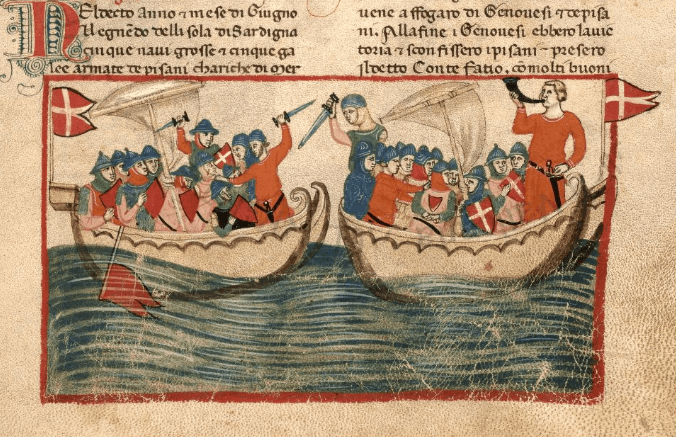 Nel decto Anno e mese di Giugno
Il egnedo delli sola di Sardigna
cinque navi grosse e cinque ga
lee armate de pisani chariche di mer
uene a ffogaro di Genouesi e de pisa
ni. Alla fine i Genouesi ebbero la uic
toria e sconfissero i pisani e presero
il detto Conte Fatio, cō molti buoni